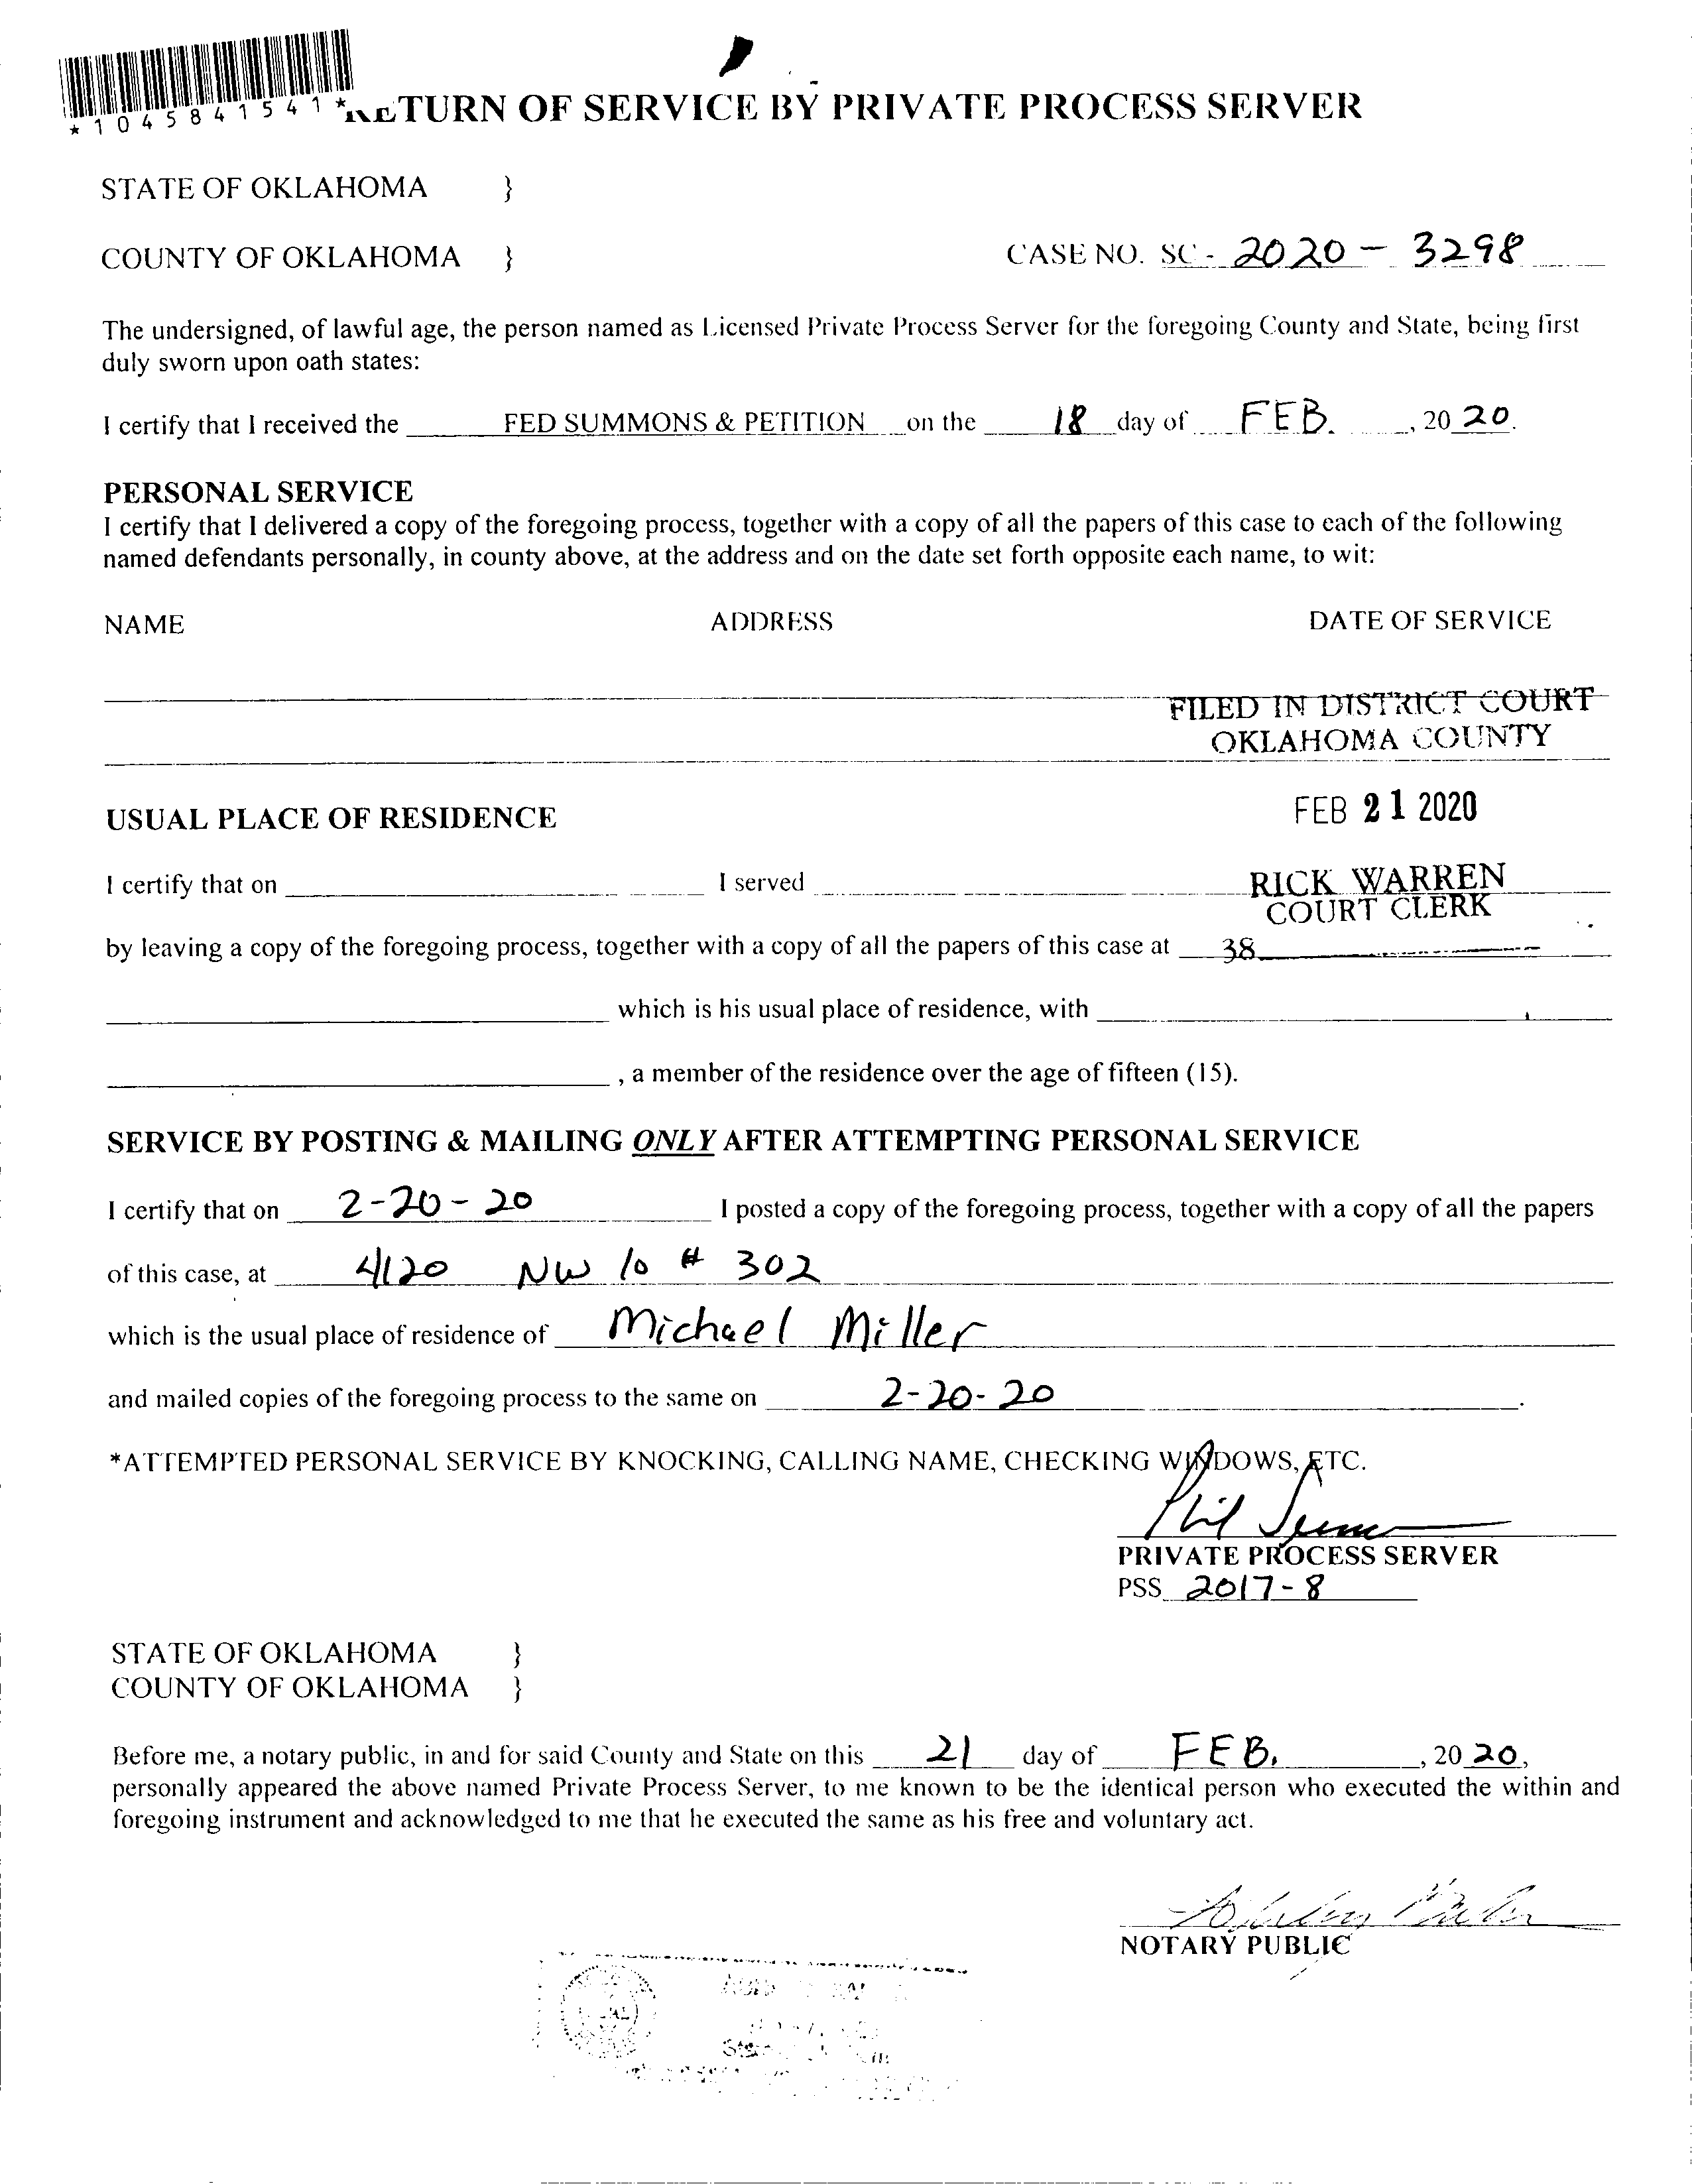 *1045841541*
RETURN OF SERVICE BY PRIVATE PROCESS SERVER
STATE OF OKLAHOMA }
COUNTY OF OKLAHOMA } CASE NO. SC - 2020 - 3298
The undersigned, of lawful age, the person named as Licensed Private Process Server for the foregoing County and State, being first
duly sworn upon oath states:
I certify that I received the FED SUMMONS & PETITION on the 18 day of FEB. , 20 20.
PERSONAL SERVICE
I certify that I delivered a copy of the foregoing process, together with a copy of all the papers of this case to each of the following
named defendants personally, in county above, at the address and on the date set forth opposite each name, to wit:
NAME ADDRESS DATE OF SERVICE
FILED IN DISTRICT COURT
OKLAHOMA COUNTY
FEB 21 2020
USUAL PLACE OF RESIDENCE
I certify that on I served
RICK WARREN
COURT CLERK
by leaving a copy of the foregoing process, together with a copy of all the papers of this case at 38
which is his usual place of residence, with
, a member of the residence over the age of fifteen (15).
SERVICE BY POSTING & MAILING ONLY AFTER ATTEMPTING PERSONAL SERVICE
I certify that on 2-20-20 I posted a copy of the foregoing process, together with a copy of all the papers
of this case, at 4120 NW 10 # 302
which is the usual place of residence of Michael Miller
and mailed copies of the foregoing process to the same on 2-20-20 .
*ATTEMPTED PERSONAL SERVICE BY KNOCKING, CALLING NAME, CHECKING WINDOWS, ETC.
Phil
PRIVATE PROCESS SERVER
PSS 2017-8
STATE OF OKLAHOMA }
COUNTY OF OKLAHOMA }
Before me, a notary public, in and for said County and State on this 21 day of FEB. , 20 20,
personally appeared the above named Private Process Server, to me known to be the identical person who executed the within and
foregoing instrument and acknowledged to me that he executed the same as his free and voluntary act.
NOTARY PUBLIC